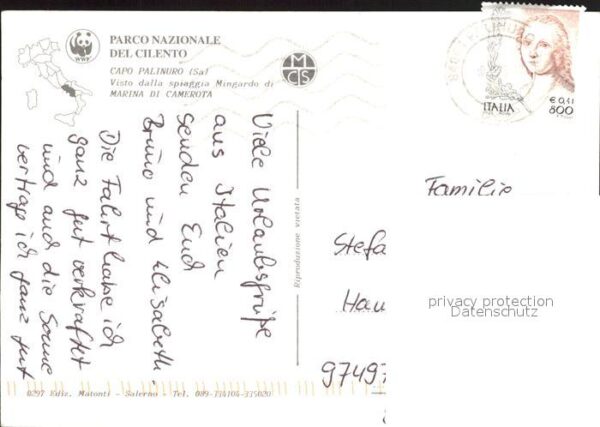 PARCO NAZIONALE
DEL CILENTO
CAPO PALINURO (Sa)
Visto dalla spiaggia Mingardo di
MARINA DI CAMEROTA
WWF
MCS
ITALIA
€ 0,41
800
Viele Urlaubsgrüße
aus Italien
senden Euch
Bruno und Elisabeth
Die Fahrt habe ich
ganz gut verkraftet
und auch die Sonne
vertrag ich ganz gut
Riproduzione vietata
Familie
Stefa
Hau
9749
privacy protection
Datenschutz
0297 Ediz. Matonti - Salerno - Tel. 089-